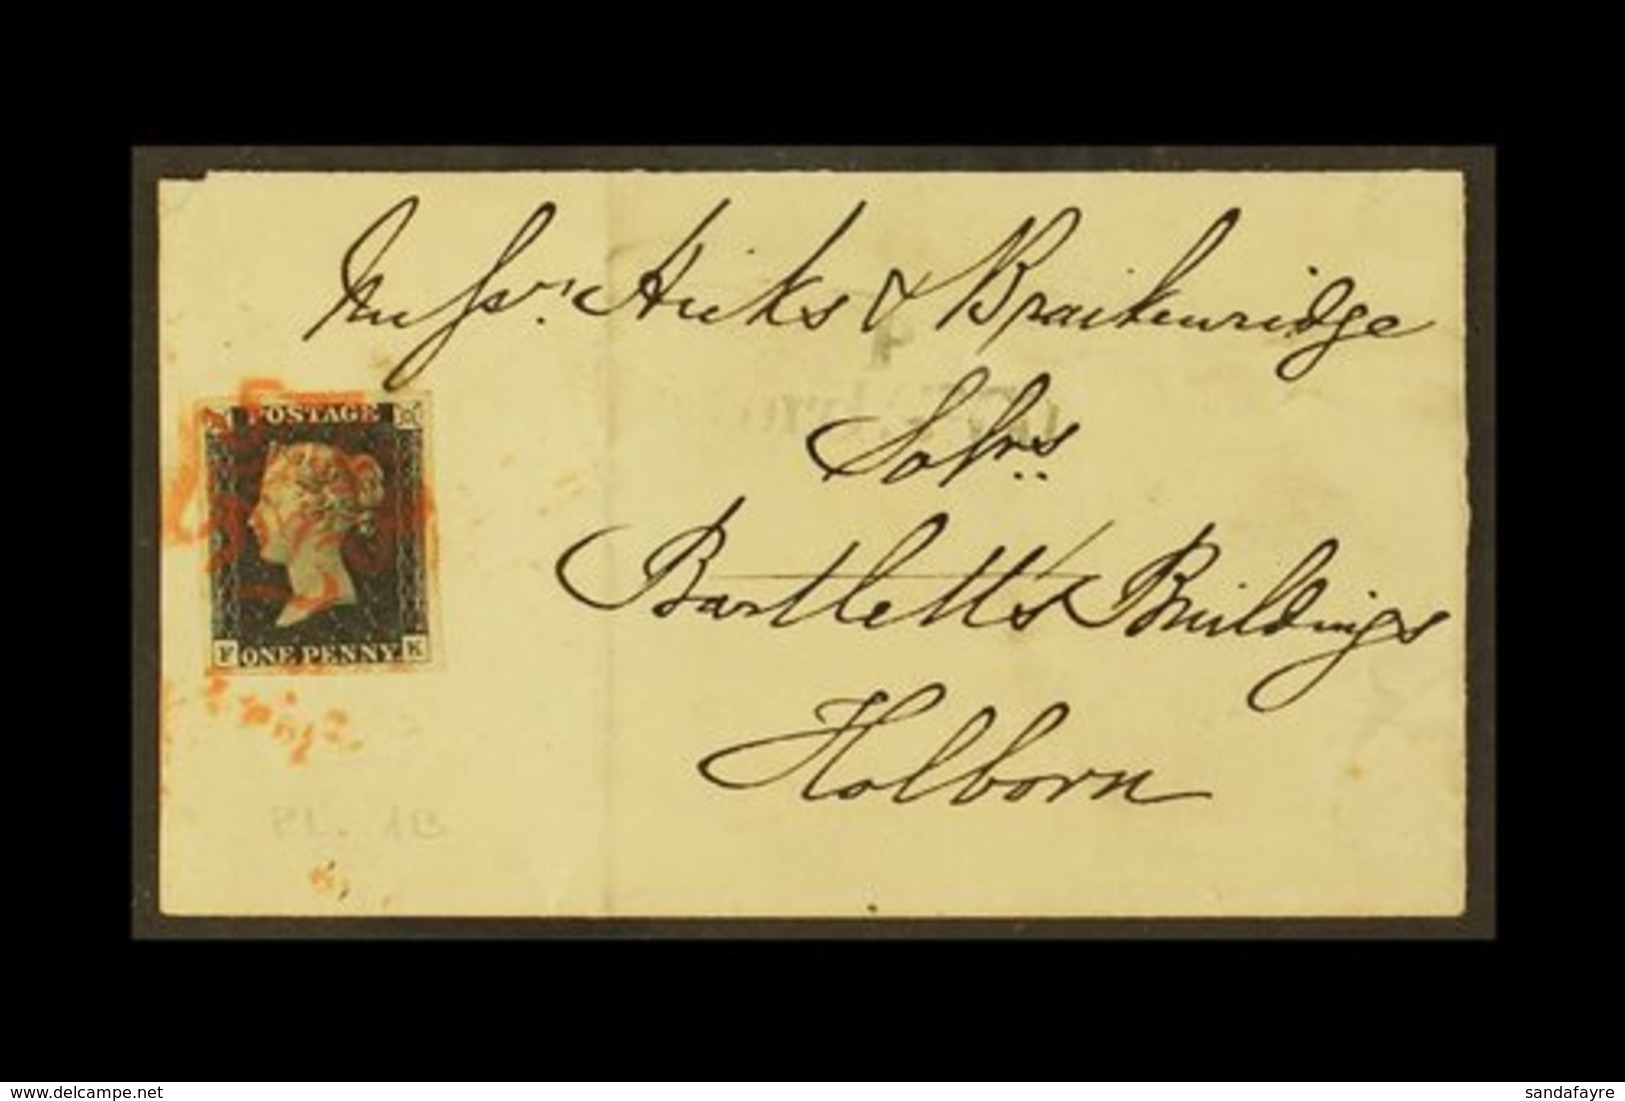 Messrs. Hicks & Braikenridge
Solrs..
Bartlett's Buildings
Holborn
POSTAGE
F ONE PENNY K
PL. 1B
www.delcampe.net
sandafayre